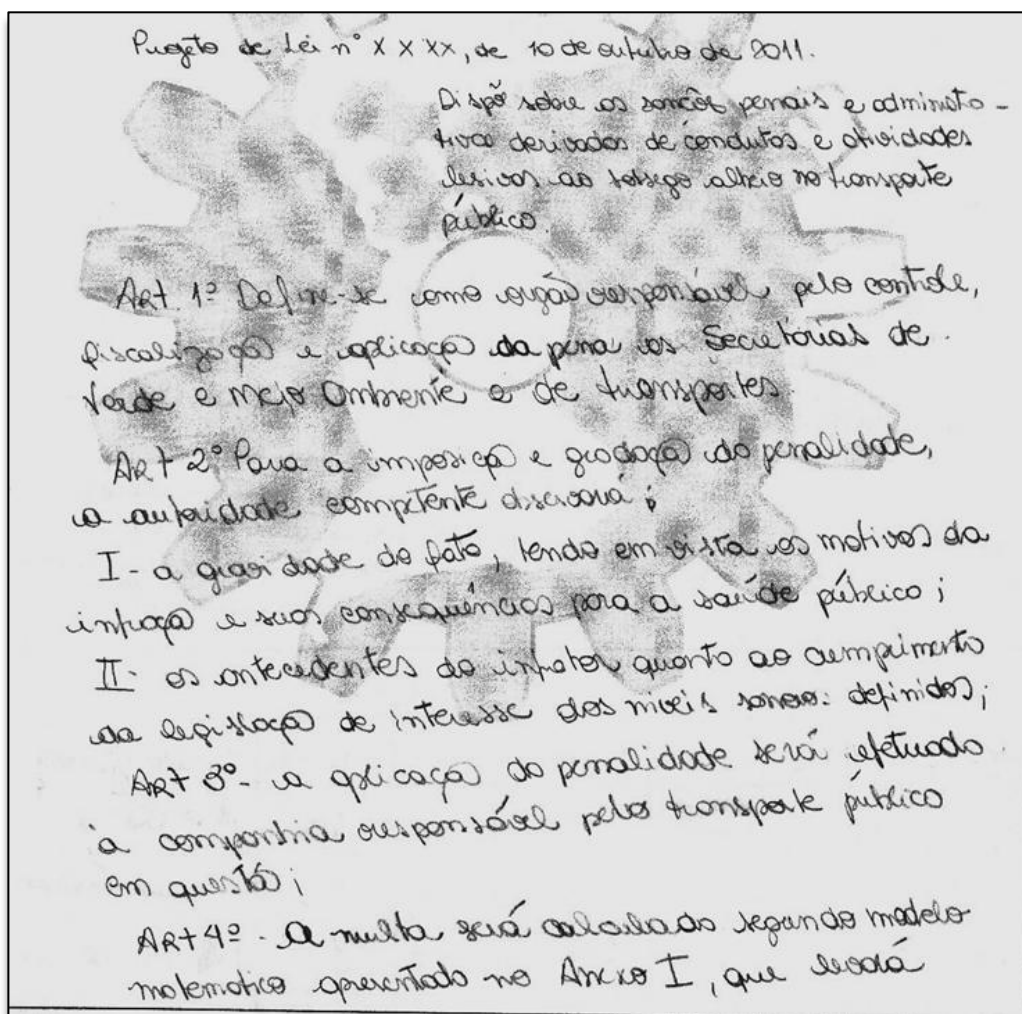 Projeto de Lei nº X X XX, de 10 de outubro de 2011.
Dispõ sobre as sanções penais e administra-
tivas derivadas de condutas e atividades
lesivas ao sossego alheio no transporte
público.
Art 1º Define-se como orgão responsável pelo controle,
fiscalização e aplicação da pena as Secretarias de
Verde e Meio Ambiente e de transportes.
Art 2º Para a imposição e gradação da penalidade,
a autoridade competente observará:
I - a gravidade do fato, tendo em vista os motivos da
infração e suas consequências para a saúde pública;
II - os antecedentes do infrator quanto ao cumprimento
da legislação de interesse dos níveis sonoros definidos;
Art 3º - a aplicação da penalidade será efetuada
à companhia responsável pelo transporte público
em questão;
Art 4º - A multa será calculada segundo modelo
matemático apresentado no Anexo I, que levará